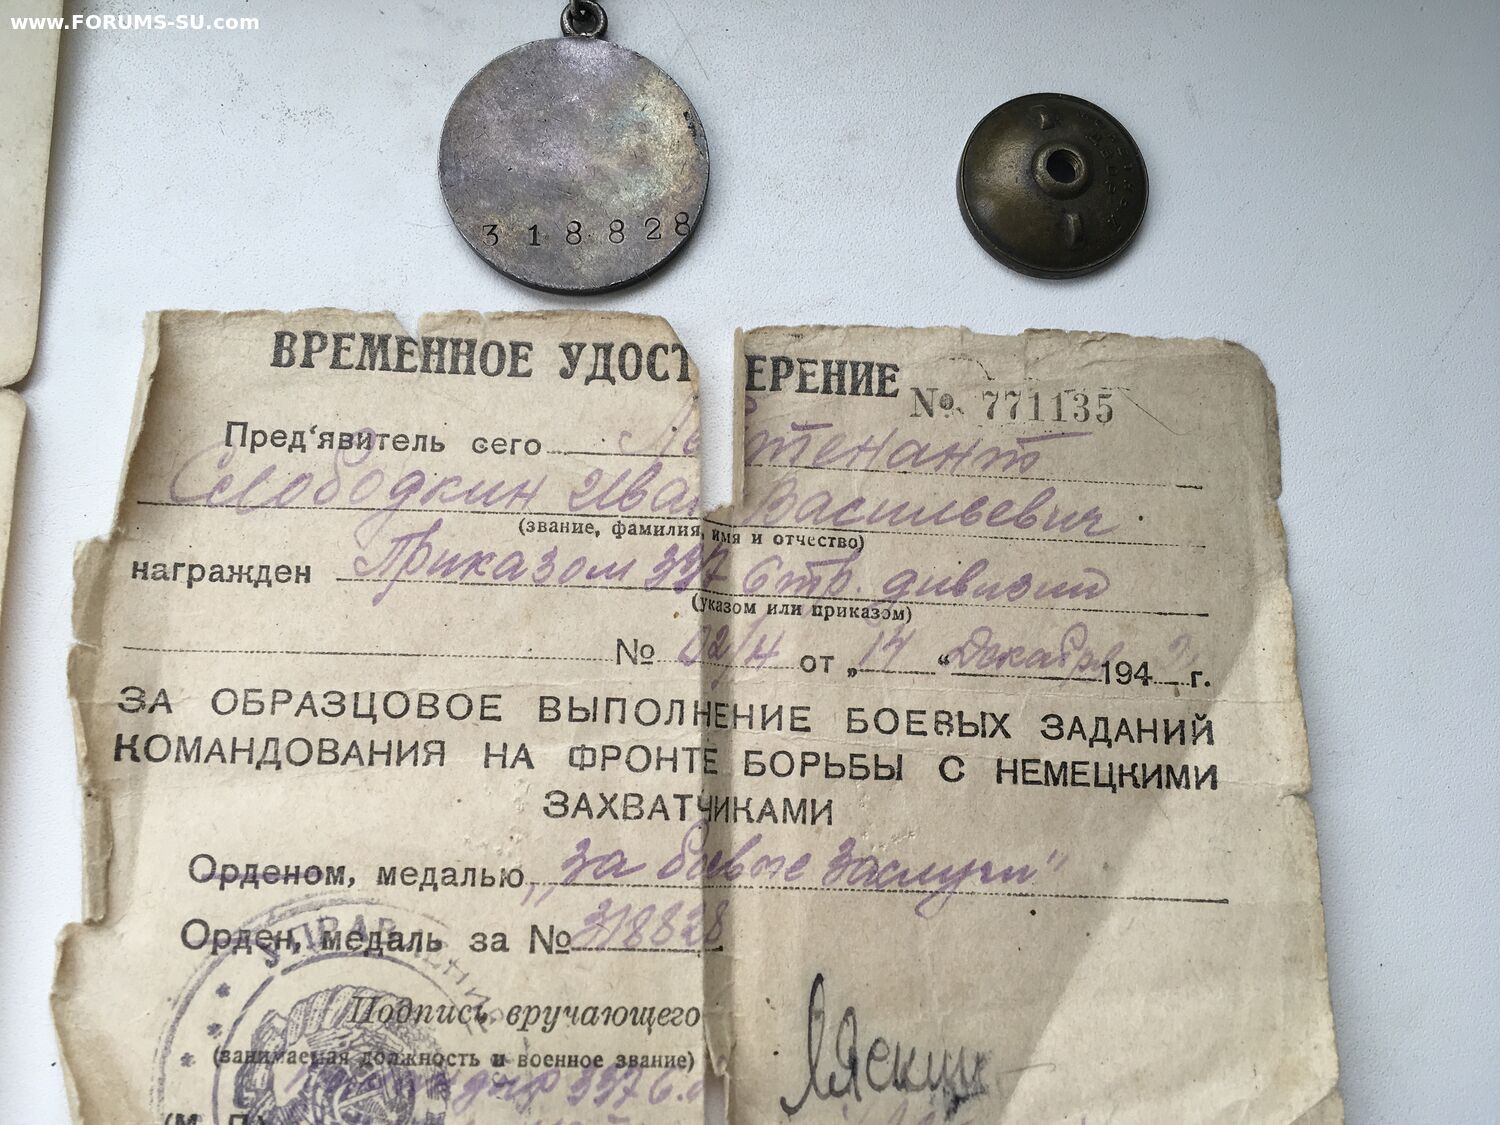 www.FORUMS-SU.com
3 1 8 8 2 8
ВРЕМЕННОЕ УДОСТ ЕРЕНИЕ
№ 771135
Пред'явитель сего Ле тенант
Слободкин Иван Васильевич
(звание, фамилия, имя и отчество)
награжден Приказом стр. дивизии
(указом или приказом)
№ 02/Н от „14 “ Декабря 194 2 г.
ЗА ОБРАЗЦОВОЕ ВЫПОЛНЕНИЕ БОЕВЫХ ЗАДАНИЙ
КОМАНДОВАНИЯ НА ФРОНТЕ БОРЬБЫ С НЕМЕЦКИМИ
ЗАХВАТЧИКАМИ
Орденом, медалью „за боевые заслуги"
Орден, медаль за № 318828
УПРАВЛЕНИ
Подпись вручающего
(занимаемая должность и военное звание)
(М. П.)